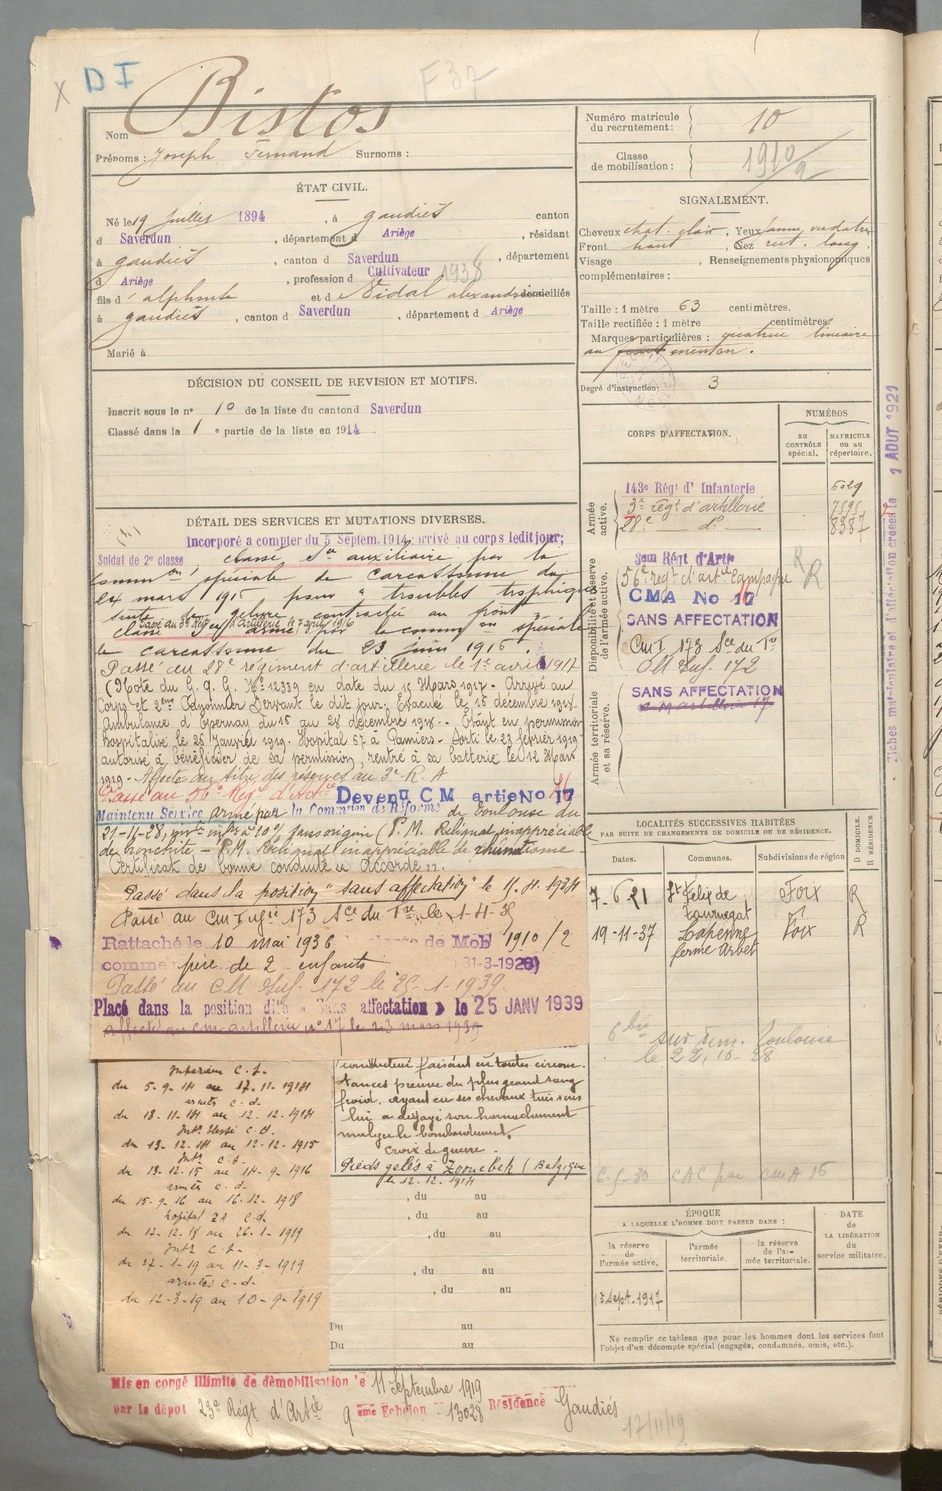 X D I
F 37
Nom Bistos
Prénoms : Joseph Fernand Surnoms :
ÉTAT CIVIL.
Né le 19 juillet 1894, à Gaudiès canton
d Saverdun, département d Ariège, résidant
à Gaudiès, canton d Saverdun, département
d Ariège, profession d Cultivateur 1938
fils d' alphonse et d Vidal alexandrine domiciliés
à Gaudiès, canton d Saverdun, département d Ariège
Marié à
DÉCISION DU CONSEIL DE REVISION ET MOTIFS.
Inscrit sous le n° 10 de la liste du canton d Saverdun
Classé dans la 1 e partie de la liste en 1914
DÉTAIL DES SERVICES ET MUTATIONS DIVERSES.
Incorporé à compter du 5 Septem. 1914, arrivé au corps ledit jour;
Soldat de 2e classe, classé Sce auxiliaire par la
Common spéciale de Carcassonne du
24 mars 1915 pour " troubles trophiques
suite de gelure contractée au front
Passé au 3e Rég d'Artillerie le 7 avril 1916
classé Sce armé par la common spéciale
de Carcassonne du 23 juin 1916.
Passé au 28e régiment d'artillerie le 1er avril 1917
(Note du G. Q. G. No 12339 en date du 15 Mars 1917 - Arrivé au
Corps et 2me Canonnier Servant le dit jour. Evacué le 15 décembre 1918
Ambulance d'Epernay du 15 au 28 décembre 1918. - Étant en permission
hospitalisé le 26 Janvier 1919. Hôpital 57 à Pamiers - Sorti le 23 février 1919
autorisé à bénéficier de sa permission, rentré à sa batterie le 12 Mars
1919 - Affecté au titre des réserves au 3e R. A
Passé au 56e Régt d'Artie Devenu CM artie No 17 16
Maintenu Service armé par la Commission de Réforme de Toulouse du
21-11-28, invté infre à 10% sans origine (P. M. Reliquat inappréciable
de bronchite - P.M. Reliquat inappréciable de rhumatisme -
Certificat de bonne conduite "Accordé".
Passé dans la position "sans affectation" le
Passé au Cm I 173 Sce du Tre le
Rattaché le 10 mai 1936 de Mob 1910/2
comme père de 2 enfants (31-3-1928)
Passé au CM Inf. 172 le 25-1-1939
Placé dans la position dite « Sans affectation » le 25 JANV 1939
affecté au cm artillerie n° 17 le 23 mars 1939
Intérieur C. S.
du 5-9-14 au 17-11-1914
armées C. d.
du 18-11-14 au 12-12-1914
Intr blessé C. d.
du 13-12-14 au 12-12-1915
Intr C. S.
du 13-12-15 au 14-9-1916
armées C. d.
du 15-9-16 au 16-12-1918
hopital ZA C. d.
du 17-12-18 au 26-1-1919
Intr C. S.
du 27-1-19 au 11-3-1919
armées C. d.
du 12-3-19 au 10-9-1919
conducteur faisant en toutes circons
tances preuve du plus grand sang
froid. ayant eu ses chevaux tués sous
lui a dégagé son harnachement
malgré le bombardement.
Croix de guerre.
Pieds gelés à Zonnebek (Belgique
le 12-12-1914
, du au
, du au
, du au
, du au
, du au
Du au
Du au
Mis en congé illimité de démobilisation le 11 Septembre 1919
par le dépôt 23e Régt d'Artie 9 ème Echelon 13028 Résidence Gaudiés
17/11/19
Numéro matricule du recrutement : 10
Classe de mobilisation : 1910/2
SIGNALEMENT.
Cheveux chat. clair, Yeux jaune verdatre
Front haut, Nez rect. long.
Visage , Renseignements physionomiques
complémentaires :
Taille : 1 mètre 63 centimètres.
Taille rectifiée : 1 mètre centimètres
Marques particulières : cicatrice linéaire
au front menton.
Degré d'instruction : 3
CORPS D'AFFECTATION.
NUMÉROS
au CONTRÔLE spécial.
MATRICULE ou au répertoire.
Armée active.
143e Régt d' Infanterie
3e régt d'artillerie 7595
28e do 8387
Disponibilité et réserve de l'armée active.
3em Régt d'Artie
56e régt d'artie campagne R R
CMA No 17 16
SANS AFFECTATION
Cm I 173 Sce du Tre
CM Inf. 172
Armée territoriale et sa réserve.
SANS AFFECTATION
C M artillerie 17
Fiches matriculaire et d'affectation créées le 1 AOUT 1921
LOCALITÉS SUCCESSIVES HABITÉES
PAR SUITE DE CHANGEMENTS DE DOMICILE OU DE RÉSIDENCE.
D DOMICILE R RÉSIDENCE
Dates. Communes. Subdivisions de région
7-6-21 St Felix de Tournegat Foix R
19-11-37 Lapenne ferme Arbet Foix R
le 22.10.28
CAC par cm A 16
ÉPOQUE
A LAQUELLE L'HOMME DOIT PASSER DANS :
DATE de LA LIBÉRATION du service militaire.
la réserve de l'armée active.
l'armée territoriale.
la réserve de l'armée territoriale.
1er Sept. 1917
Ne remplir ce tableau que pour les hommes dont les services font
l'objet d'un décompte spécial (engagés, condamnés, omis, etc.).